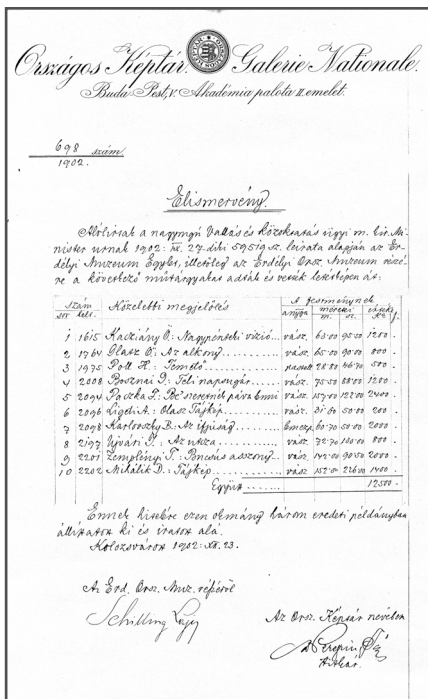 Országos Képtár. Galerie Nationale.
Buda Pest, V. Akadémia palota II. emelet.
698 szám
1902.
Elismervény.
Alólirtak a nagymgú Vallás és közoktatás ügyi m. kir. Mi-
nister urnak 1902: XII. 27. diki 59519 sz. leirata alapján az Er-
délyi Muzeum Egylet, illetőleg az Erdélyi Orsz. Muzeum részé-
re a következő műtárgyakat adták és vették letétképen át:
Szám Közelebbi megjelölés A festménynek
sor lelt. anyga méretei m. sz. értéke
1 1615 Kacziány Ö.: Nagypénteki vizió... vász. 63·00 95·50 1200
2 1764 Olasz Ö.: Az alkony... vász. 65·00 90·00 800
3 1975 Poll H.: Temető... pastell 28·80 46·70 500
4 2008 Bosznai I.: Téli napsugár... vász. 75·50 88·00 1200
5 2094 Paczka F.: vász. 157·00 122·00 2400
6 2096 Ligeti A.: Olasz Tájkép... vász. 31·60 50·00 200
7 2098 Karlovszky B.: Az ifjúság... 60·70 50·00 2000
8 2197 Ujvári I.: Az utsza... vász. 72·70 100·00 800
9 2201 Zemplényi T.: Bencsés asszony... vász. 142·00 90·50 2000
10 2202 Mihálik D.: Tájkép... vász. 152·00 226·00 1400
Együtt... 12500
Ennek hitelére ezen okmány három eredeti példányban
állittatott ki és iratott alá.
Kolozsvárott 1902: XII. 23.
Az Erd. Orsz. Muz. részéről
Az Orsz. Képtár nevében
Schilling Lajos